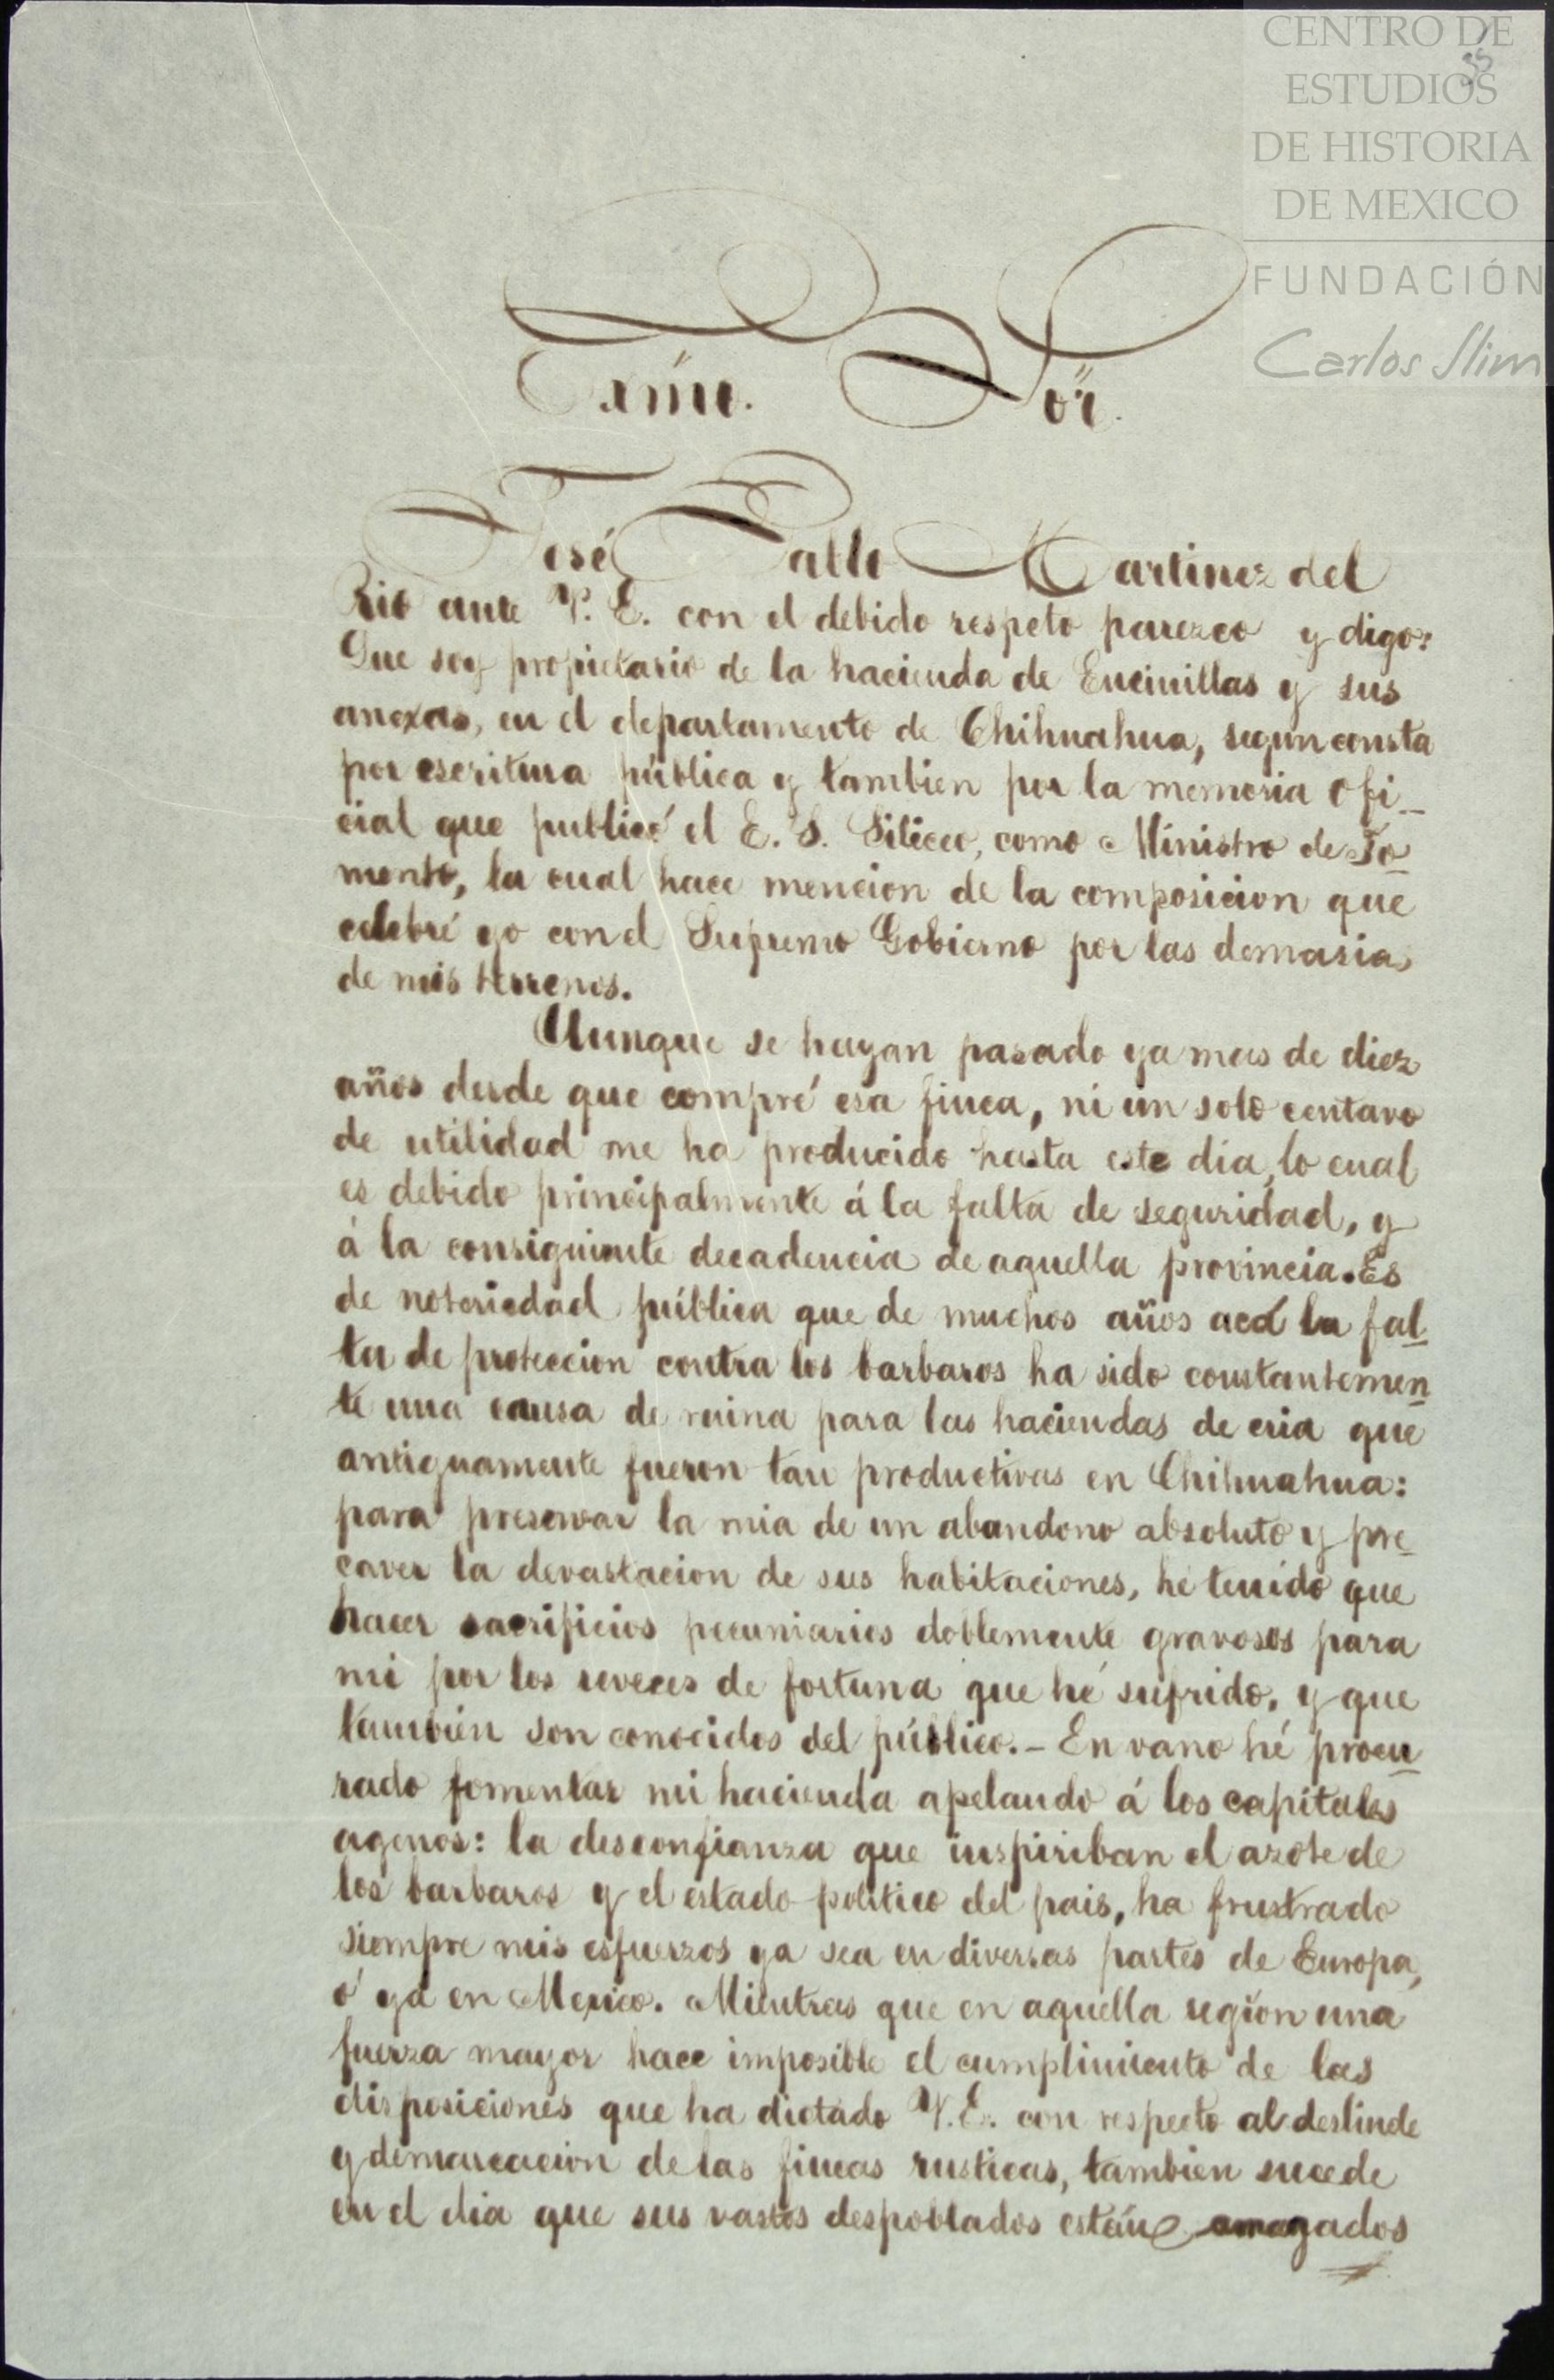 CENTRO DE
ESTUDIOS
DE HISTORIA
DE MEXICO
FUNDACIÓN
Carlos Slim
Exmo. Sor.
José Pablo Martinez del
Rio ante V. E. con el debido respeto parezco y digo:
Que soy propietario de la hacienda de Encinillas y sus
anexas, en el departamento de Chihuahua, segun consta
por escritura pública y tambien por la memoria ofi_
cial que publicó el E. S. Siliceo, como Ministro de Fo_
mento, la cual hace mencion de la composicion que
celebré yo con el Supremo Gobierno por las demasias
de mis terrenos.
Aunque se hayan pasado ya mas de diez
años desde que compré esa finca, ni un solo centavo
de utilidad me ha producido hasta este dia, lo cual
es debido principalmente á la falta de seguridad, y
á la consiguiente decadencia de aquella provincia. Es
de notoriedad pública que de muchos años acá la fal_
ta de proteccion contra los barbaros ha sido constantemen_
te una causa de ruina para las haciendas de cria que
antiguamente fueron tan productivas en Chihuahua:
para preservar la mia de un abandono absoluto y pre_
caver la devastacion de sus habitaciones, hé tenido que
hacer sacrificios pecuniarios doblemente gravosos para
mi por los reveces de fortuna que hé sufrido, y que
tambien son conocidos del público.- En vano hé procu_
rado fomentar mi hacienda apelando á los capitales
agenos: la desconfianza que inspiriban el azote de
los barbaros y el estado politico del pais, ha frustrado
siempre mis esfuerzos ya sea en diversas partes de Europa,
ó ya en Mexico. Mientras que en aquella region una
fuerza mayor hace imposible el cumplimiento de las
disposiciones que ha dictado V. E. con respecto al deslinde
y demarcacion de las fincas rusticas, tambien sucede
en el dia que sus vastos despoblados están amagados